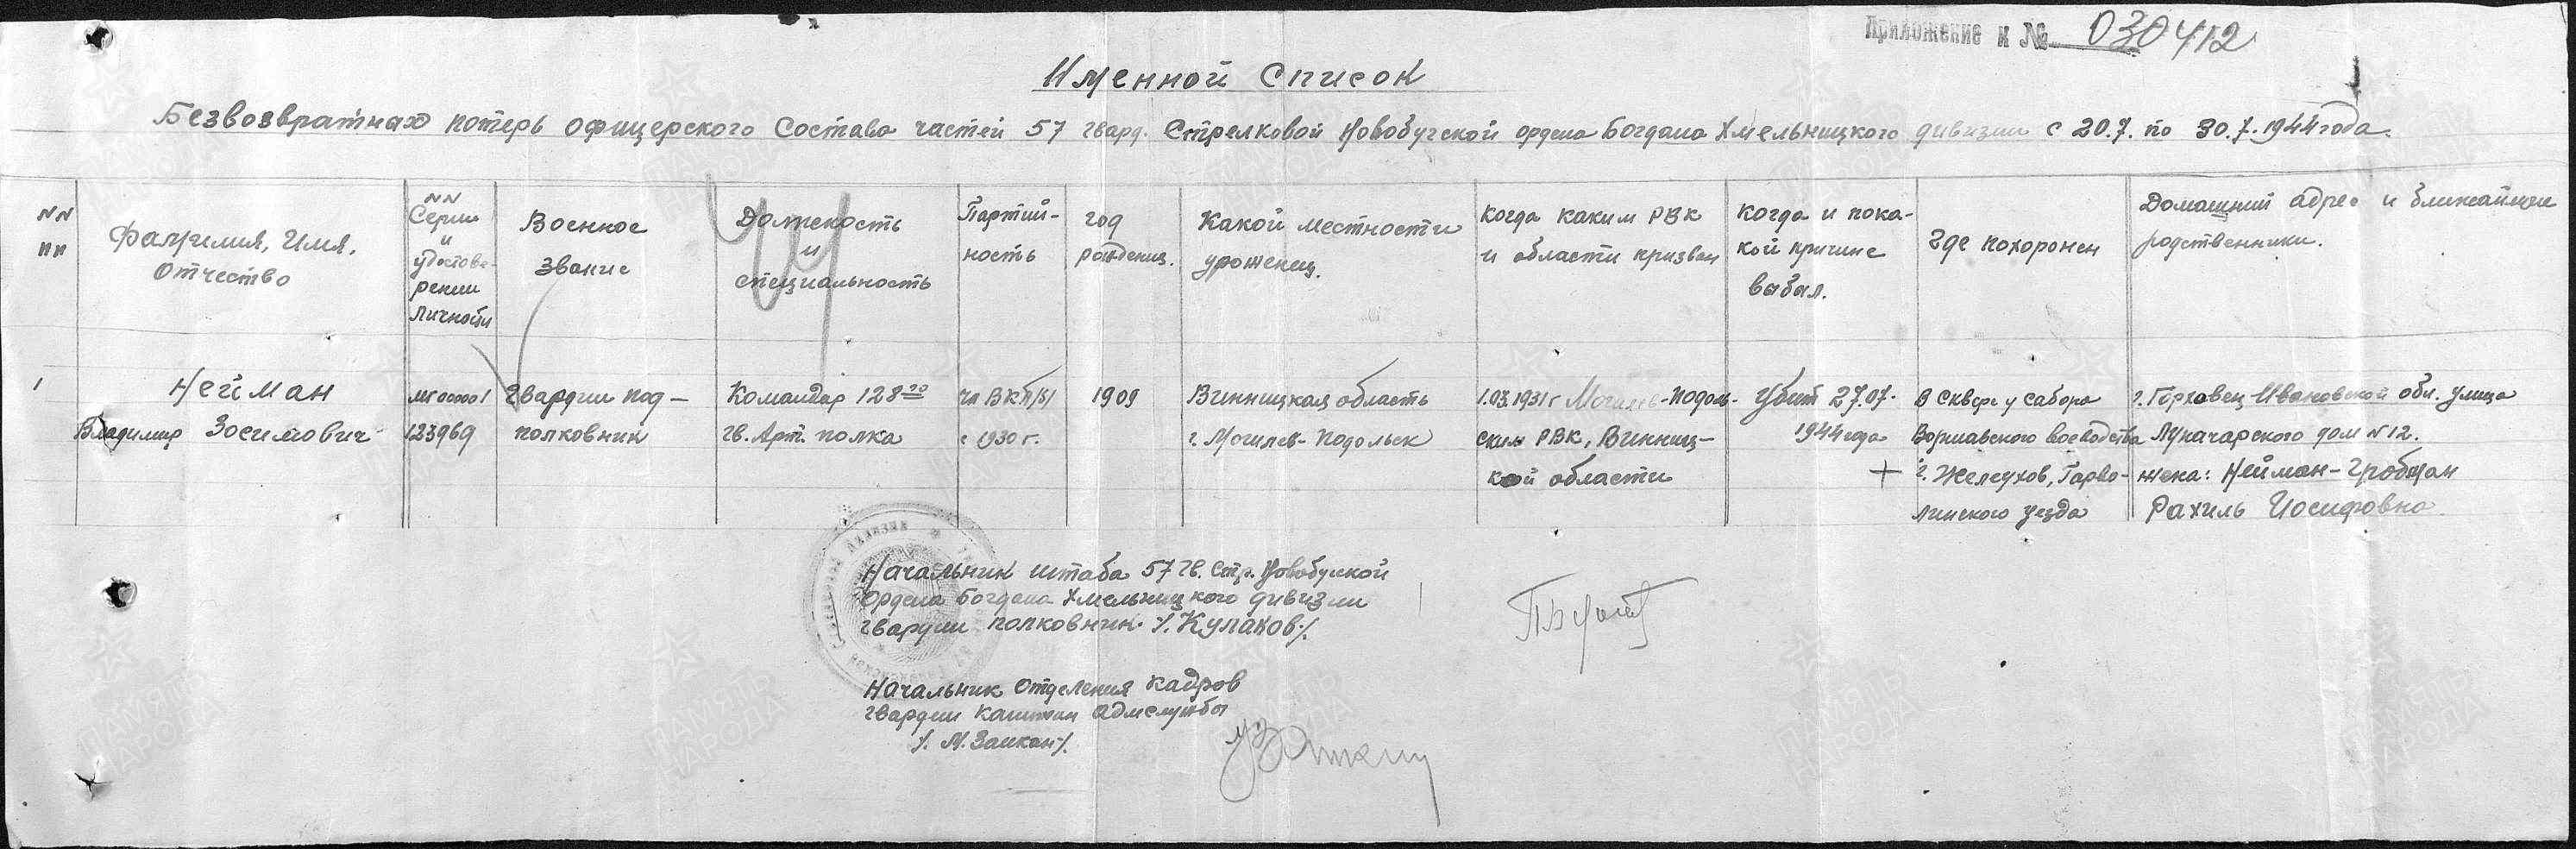 Приложение к № 030412
Именной список
Безвозвратных потерь офицерского состава частей 57 гвард. Стрелковой Новобугской ордена Богдана Хмельницкого дивизии с 20.7. по 30.7.1944 года.
NN пп
Фамилия, Имя, Отчество
NN Серии и удостоверении Личности
Военное звание
Должность и специальность
Партийность
год рождения.
Какой местности уроженец.
Когда каким РВК и области призван
Когда и по какой причине выбыл.
Где похоронен
Домашний адрес и ближайшие родственники.
1
Нейман
Владимир Зосимович
123969
Гвардии под-
полковник
Командир 128го
гв. Арт. полка
чл ВКП/б/
с 1930 г.
1909
Винницкая область
г. Могилев-Подольск
1.03.1931 г Могилев-Подоль-
ским РВК, Винниц-
кой области
Убит 27.07.
1944 года
+
В Сквере у Собора
Варшавского воеводства
г. Желехов, Гарво-
линского уезда
г. Гороховец Ивановской обл. улица
Луначарского дом N 12.
жена: Нейман-
Рахиль Иосифовна
Начальник штаба 57 Гв. Стр. Новобугской
Ордена Богдана Хмельницкого дивизии
гвардии полковник /.Кулаков./
Начальник отделения кадров
гвардии капитан адмслужбы
/. М. Заикан /.
ПАМЯТЬ НАРОДА